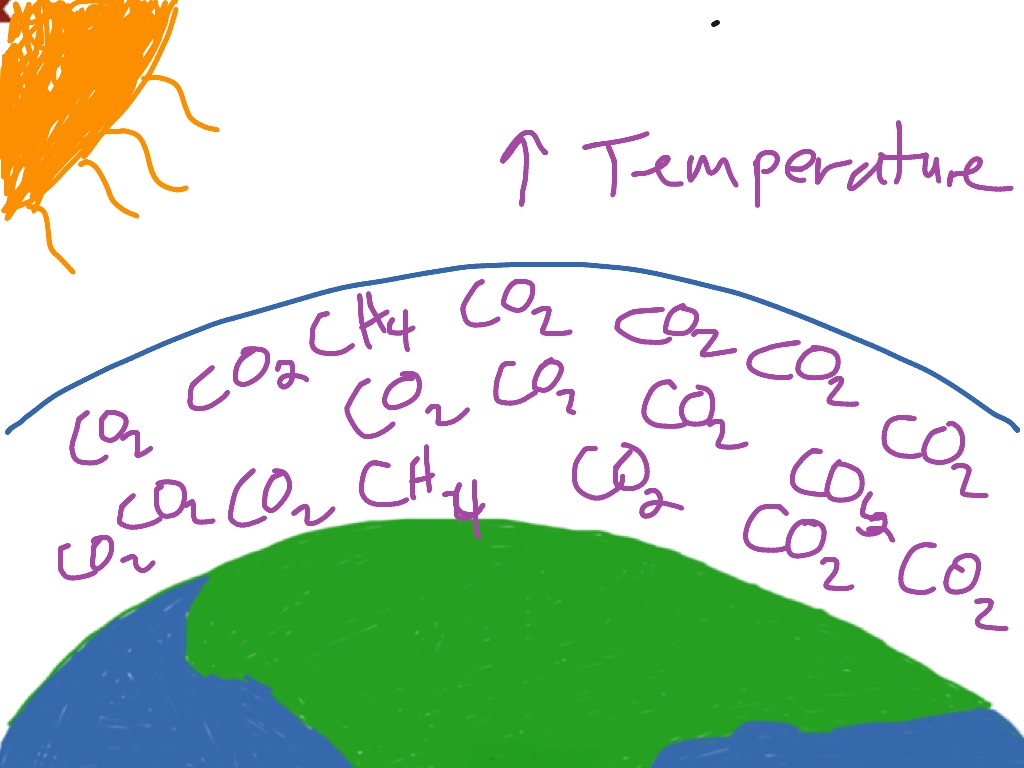 ↑ Temperature
CH4 CO2 CO2 CO2
CO2 CO2 CO2 CO2
CO2 CO2
CO2 CO2 CH4 CO2 CO2
CO2 CO2 CO2